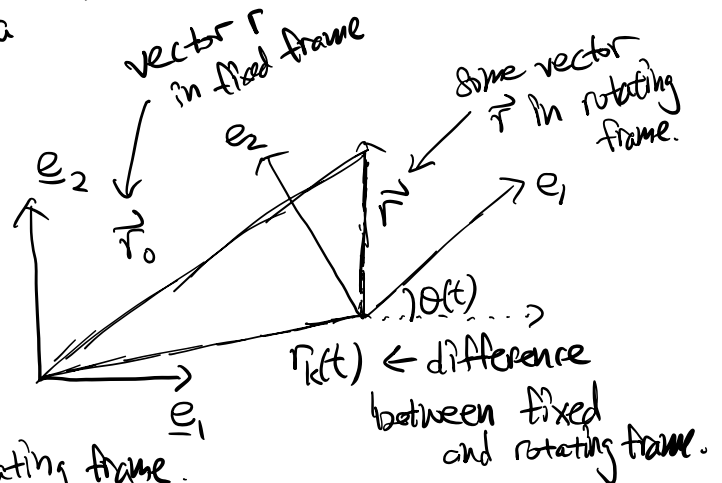 a
vector r
in fixed frame
some vector
r⃗ in rotating
frame.
e₂
e₂
r⃗₀
r⃗
e₁
θ(t)
rₖ(t) ← difference
between fixed
and rotating frame.
e₁
ating frame.